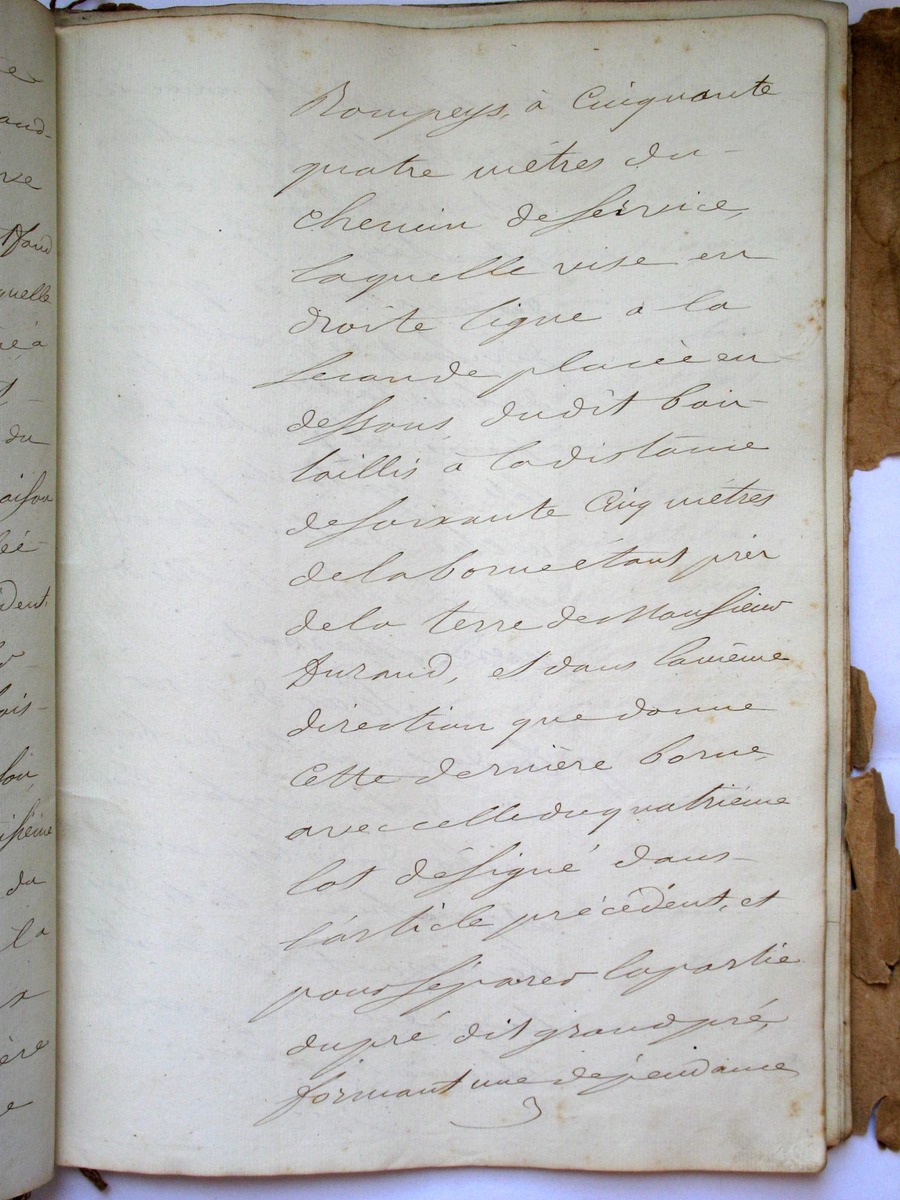 Rompeys, à Cinquante
quatre mètres du
chemin de service,
laquelle vise en
droite ligne a la
seconde placée en
dessous dudit bois
taillis à la distance
de soixante Cinq mètres
de la borne étant près
de la terre de Monsieur
Durand, et dans la même
direction que donne
Cette dernière borne,
avec celle du quatrième
lot désigné dans
l'article précédent, et
pour séparer la partie
du pré dit grand pré,
formant une dépendance